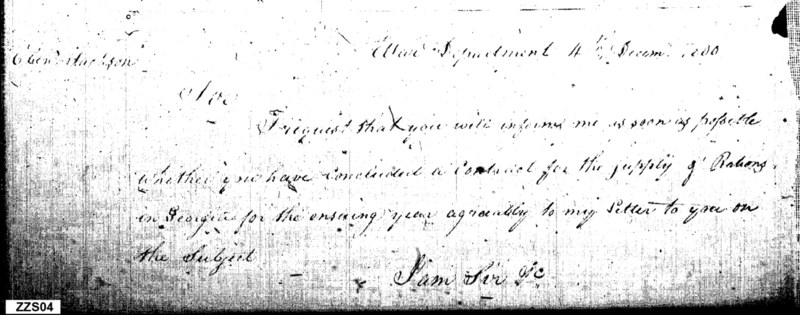 War Department 4th Decem. 1800
Eben. Jackson
Sir
I request that you will inform me as soon as possible
whether you have concluded a Contract for the supply of Rations
in Georgia for the ensuing year agreeably to my Letter to you on
the Subject
I am Sir &c
ZZS04